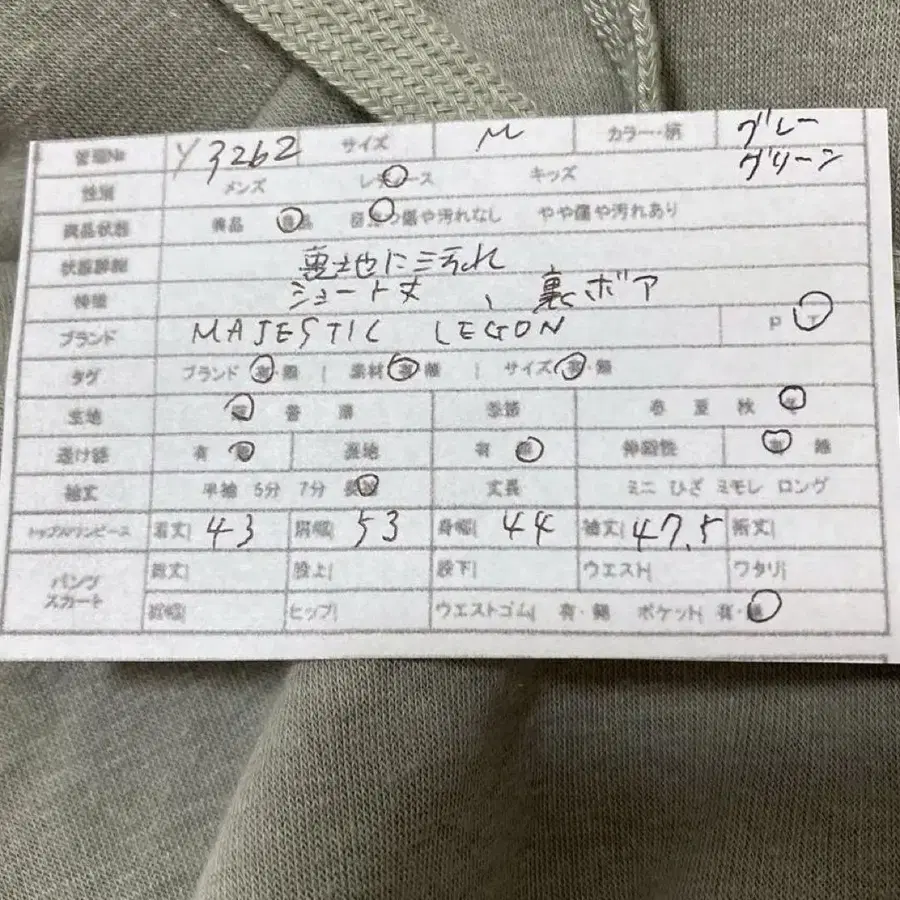 管理№ Y3262 サイズ M カラー・柄 グレー グリーン
性別 メンズ レディース キッズ
商品状態 美品 良品 目立つ傷や汚れなし やや傷や汚れあり
状態詳細 裏地に汚れ
特徴 ショート丈、裏ボア
ブランド MAJESTIC LEGON P T
タグ ブランド 有・無 | 素材 有・無 | サイズ 有・無
生地 厚 普 薄 季節 春 夏 秋 冬
透け感 有 無 裏地 有 無 伸縮性 有 無
袖丈 半袖 5分 7分 長袖 丈長 ミニ ひざ ミモレ ロング
トップス/ワンピース 着丈| 43 肩幅| 53 身幅| 44 袖丈| 47.5 裄丈|
パンツ スカート 総丈| 股上| 股下| ウエスト| ワタリ|
裾幅| ヒップ| ウエストゴム| 有・無 ポケット| 有・無